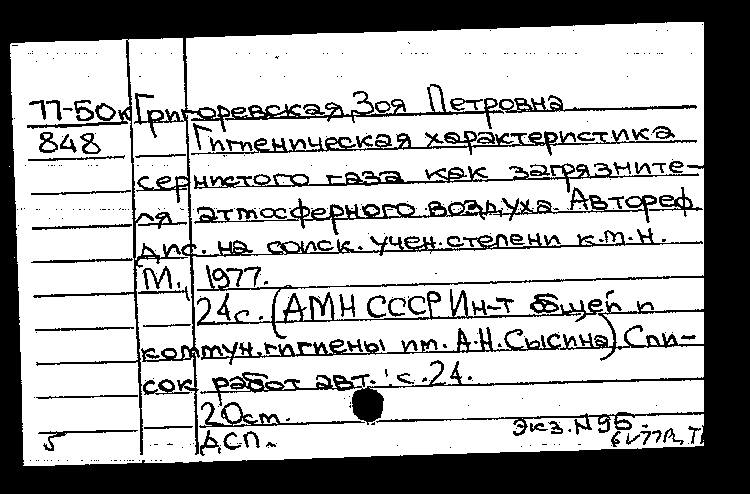 77-50к Григоревская, Зоя Петровна
848 Гигиеническая характеристика
сернистого газа как загрязните-
ля атмосферного воздуха. Автореф.
дис. на соиск. учен. степени к.т.н.
М., 1977.
24с. (АМН СССР Ин-т общей и
коммун. гигиены им. А.Н. Сысина). Спи-
сок работ авт.: с. 24.
20см.
5 ДСП. Экз. N 95.